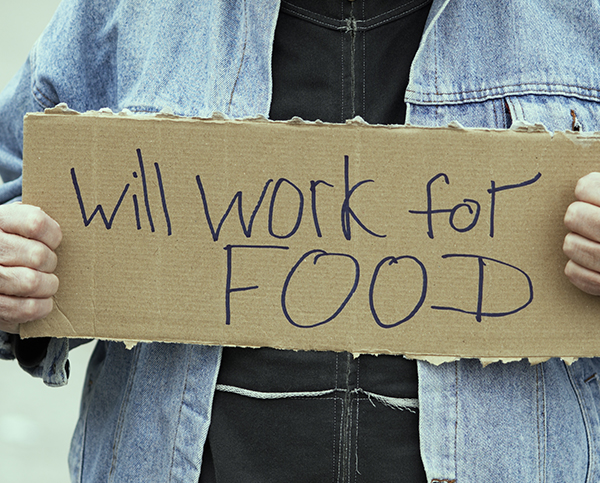 will work for
FOOD